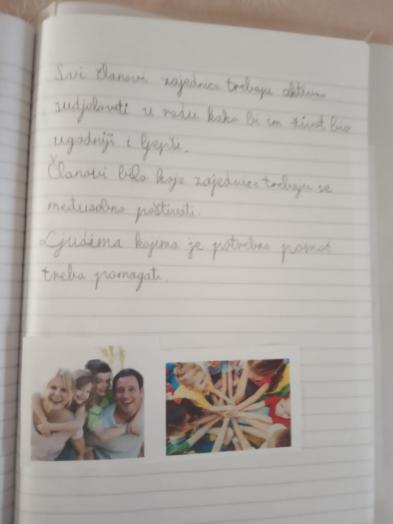 Svi članovi zajednice trebaju aktivno
sudjelovati u radu kako bi im život bio
ugodniji i ljepši.
Članovi bilo koje zajednice trebaju se
međusobno poštivati.
Ljudima kojima je potrebna pomoć
treba pomagati.